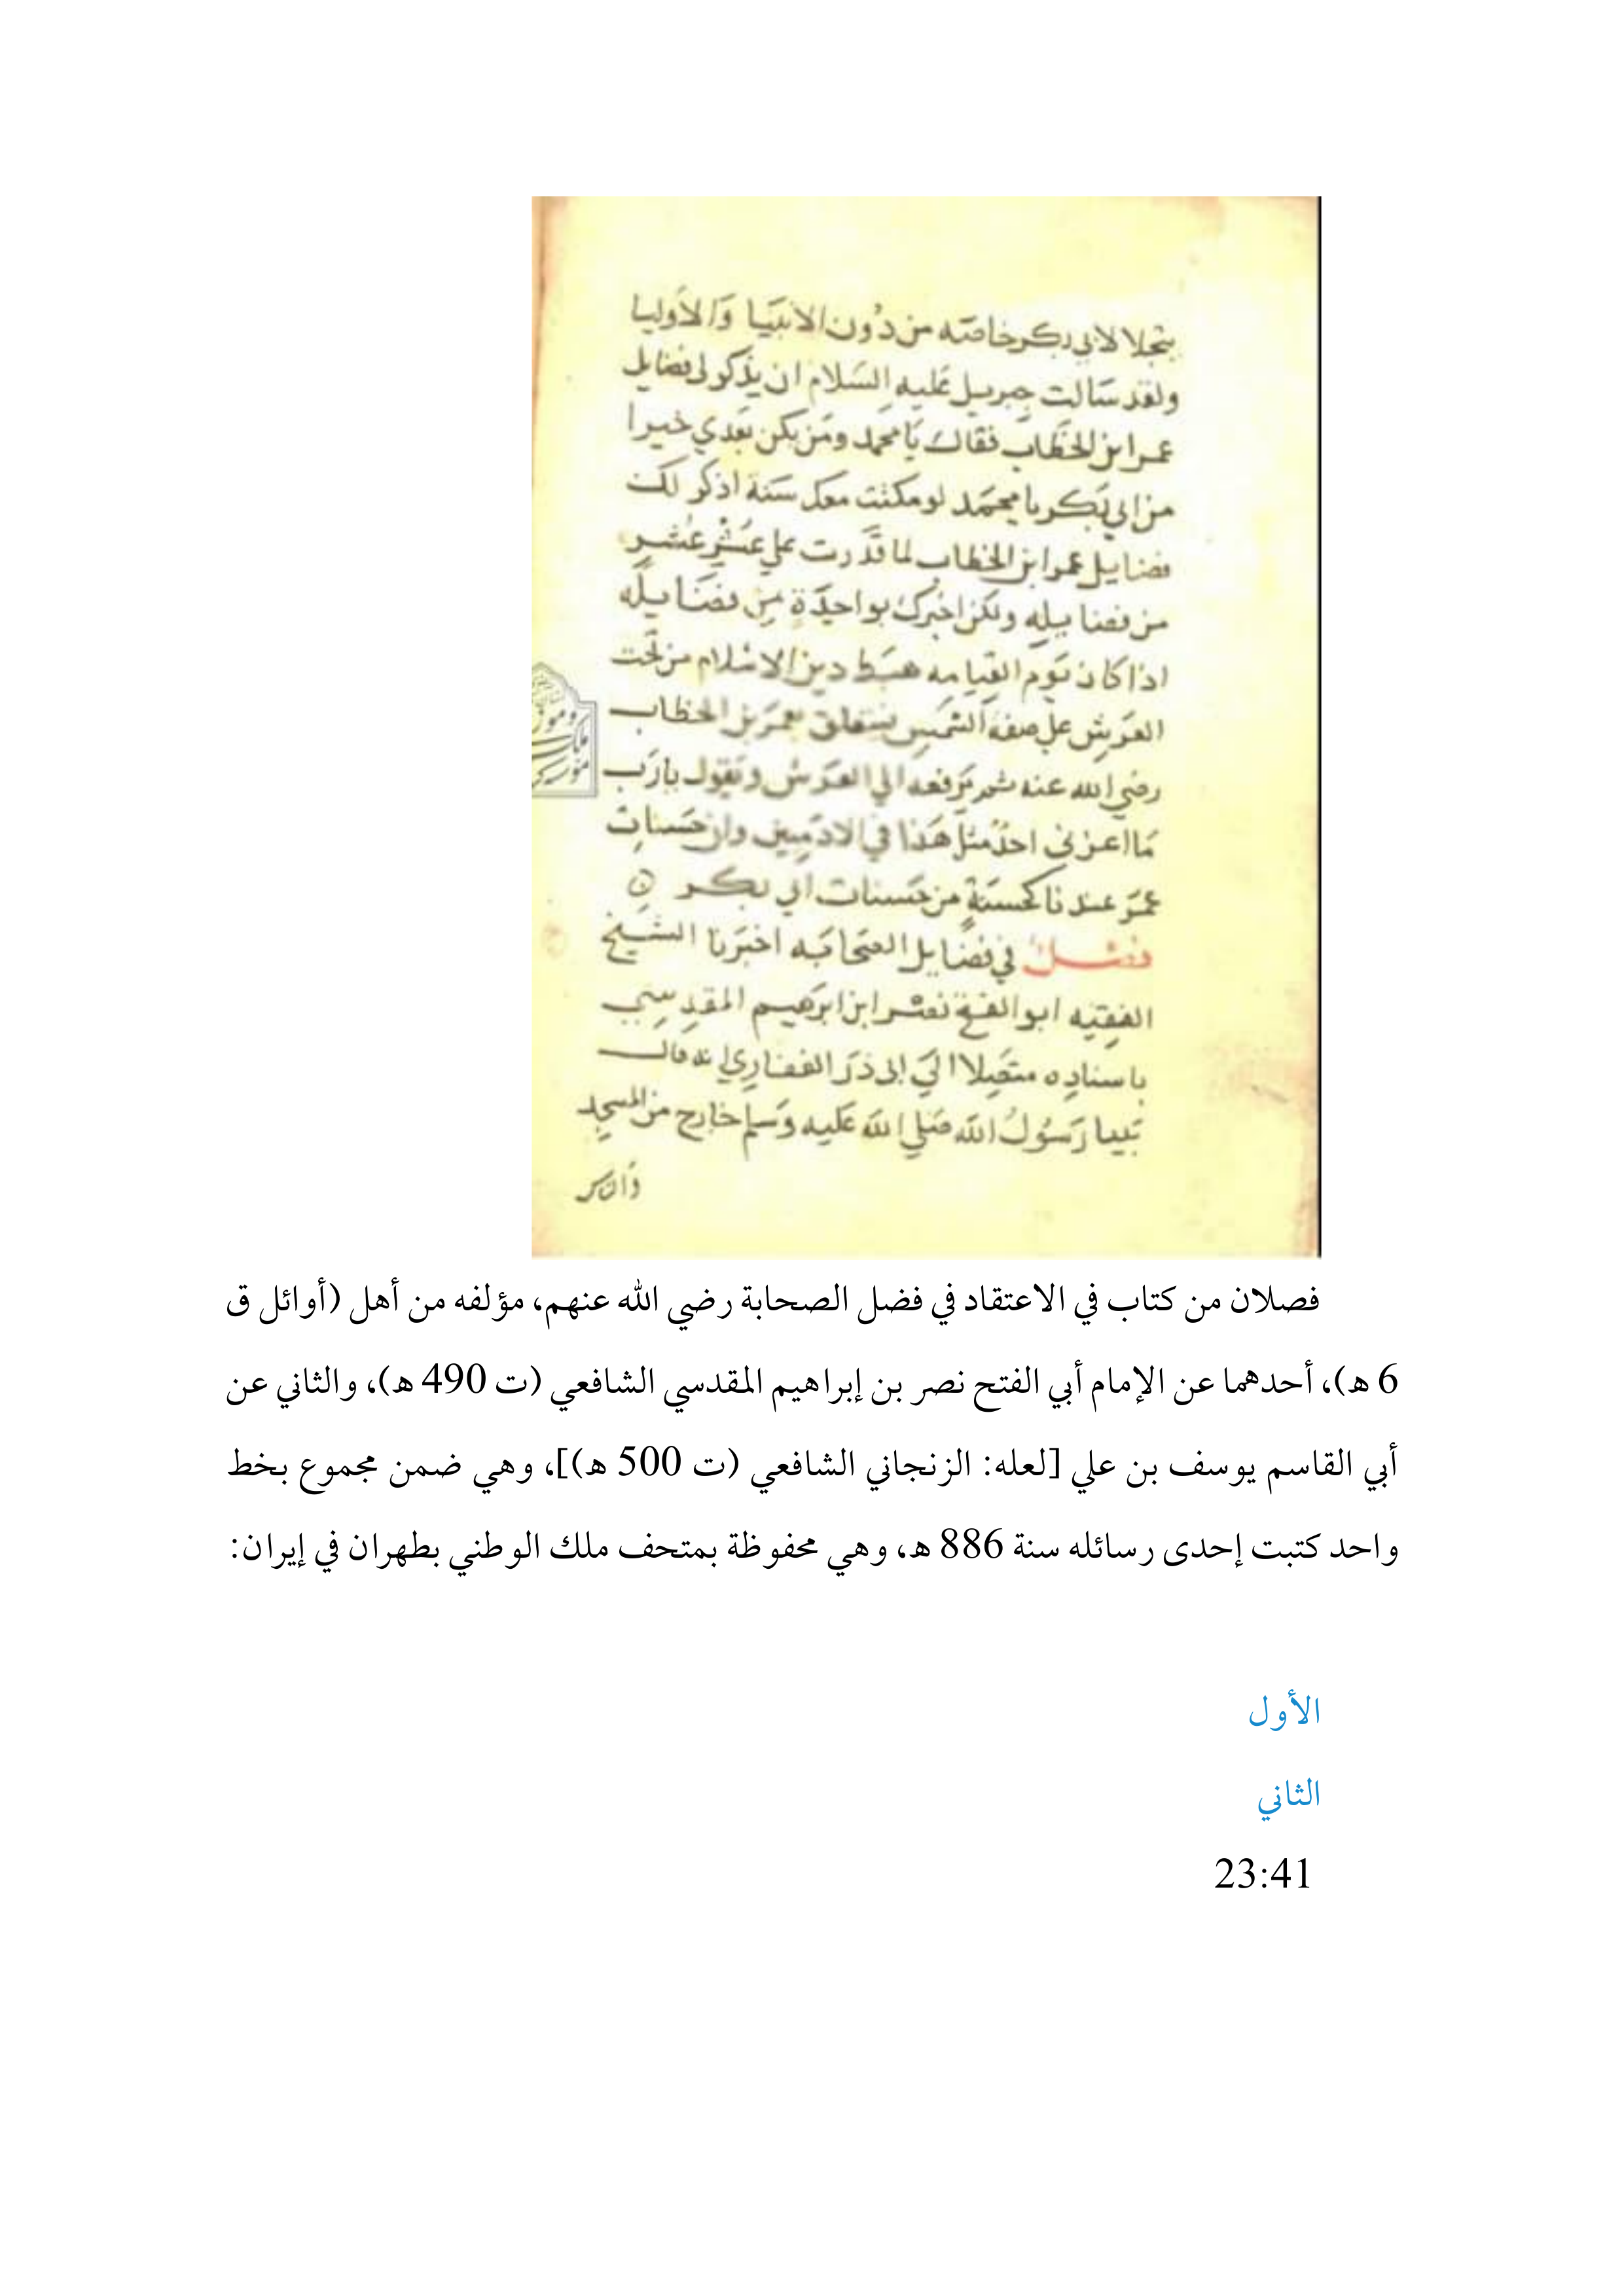 يتجلا لابي بكر خاصة من دون الانبيا والاوليا
ولقد سالت جبريل عليه السلام ان يذكر لي فضايل
عمر ابن الخطاب فقال يا محمد ومن يكن بعدي خيرا
من ابي بكر يا محمد لو مكثت معك سنة اذكر لك
فضايل عمر ابن الخطاب لما قدرت علي عشر عشر
من فضايله ولكن اخبرك بواحدة من فضايله
اذا كان يوم القيامه هبط دين الاسلام من تحت
العرش علي صفة الشمس يتعلق بعمر بن الخطاب
رضي الله عنه ثم يرفعه الي العرش ويقول يا رب
ما اعزني احد مثل هذا في الادميين وان حسنات
عمر عندنا كحسنة من حسنات ابي بكر
فصل في فضايل الصحابه اخبرنا الشيخ
الفقيه ابو الفتح نصر ابن ابرهيم المقدسي
باسناده متصلا الي ابي ذر الغفاري انه قال
بينا رسول الله صلي الله عليه وسلم خارج من المسجد
فصلان من كتاب في الاعتقاد في فضل الصحابة رضي الله عنهم، مؤلفه من أهل (أوائل ق
6 هـ)، أحدهما عن الإمام أبي الفتح نصر بن إبراهيم المقدسي الشافعي (ت 490 هـ)، والثاني عن
أبي القاسم يوسف بن علي [لعله: الزنجاني الشافعي (ت 500 هـ)]، وهي ضمن مجموع بخط
واحد كتبت إحدى رسائله سنة 886 هـ، وهي محفوظة بمتحف ملك الوطني بطهران في إيران:
الأول
الثاني
23:41